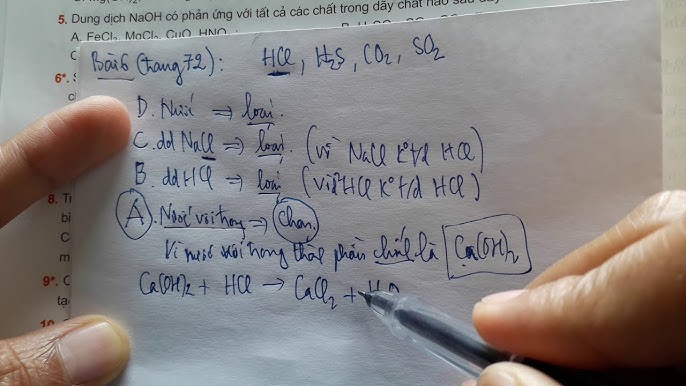 5. Dung dịch NaOH có phản ứng với tất cả các chất trong dãy chất nào sau đây
A. FeCl₃, MgCl₂, CuO, HNO₃
6*.
Bài 6 (trang 72): HCl, H₂S, CO₂, SO₂
D. Nước ⇒ loại.
C. dd NaCl ⇒ loại. (vì NaCl k° t/d HCl)
B. dd HCl ⇒ loại (vì HCl k° t/d HCl)
A. Nước vôi trong ⇒ Chọn.
Vì nước vôi trong thành phần chất là Ca(OH)₂
Ca(OH)₂ + HCl → CaCl₂ + H₂O
8.
9*.
10.